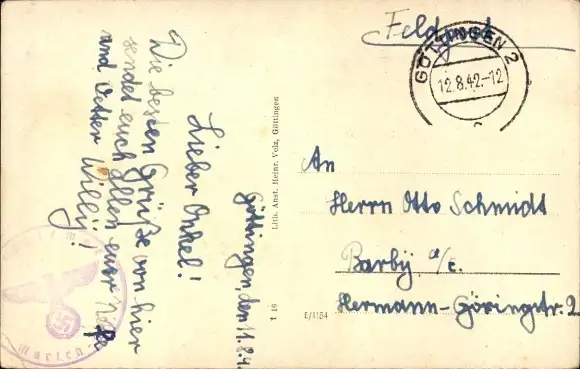 Feldpost
GÖTTINGEN 2
12.8.42.-12
c
Göttingen, den 11.8.4
Lieber Onkel!
Die besten Grüße von hier
sendet euch allen euer Neffe
und Vetter Willy!
Lith. Anst. Heinr. Volz, Göttingen
t 16
E/1184
An
Herrn Otto Schmidt
Barby a/E.
Hermann-Göringstr. 2